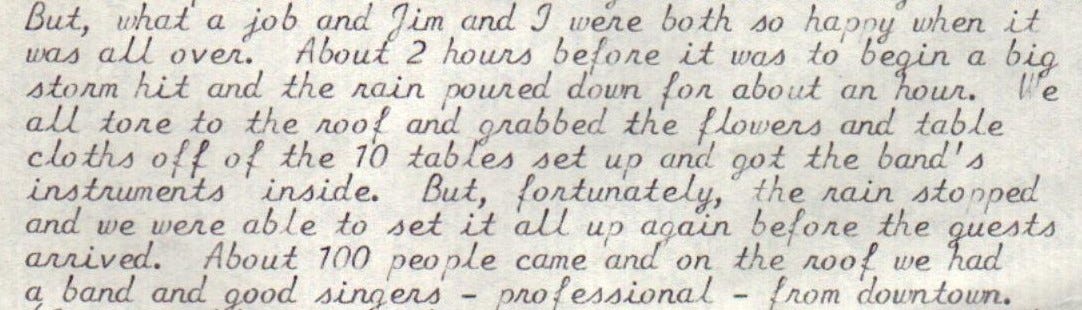 But, what a job and Jim and I were both so happy when it
was all over. About 2 hours before it was to begin a big
storm hit and the rain poured down for about an hour. We
all tore to the roof and grabbed the flowers and table
cloths off of the 10 tables set up and got the band's
instruments inside. But, fortunately, the rain stopped
and we were able to set it all up again before the guests
arrived. About 100 people came and on the roof we had
a band and good singers - professional - from downtown.